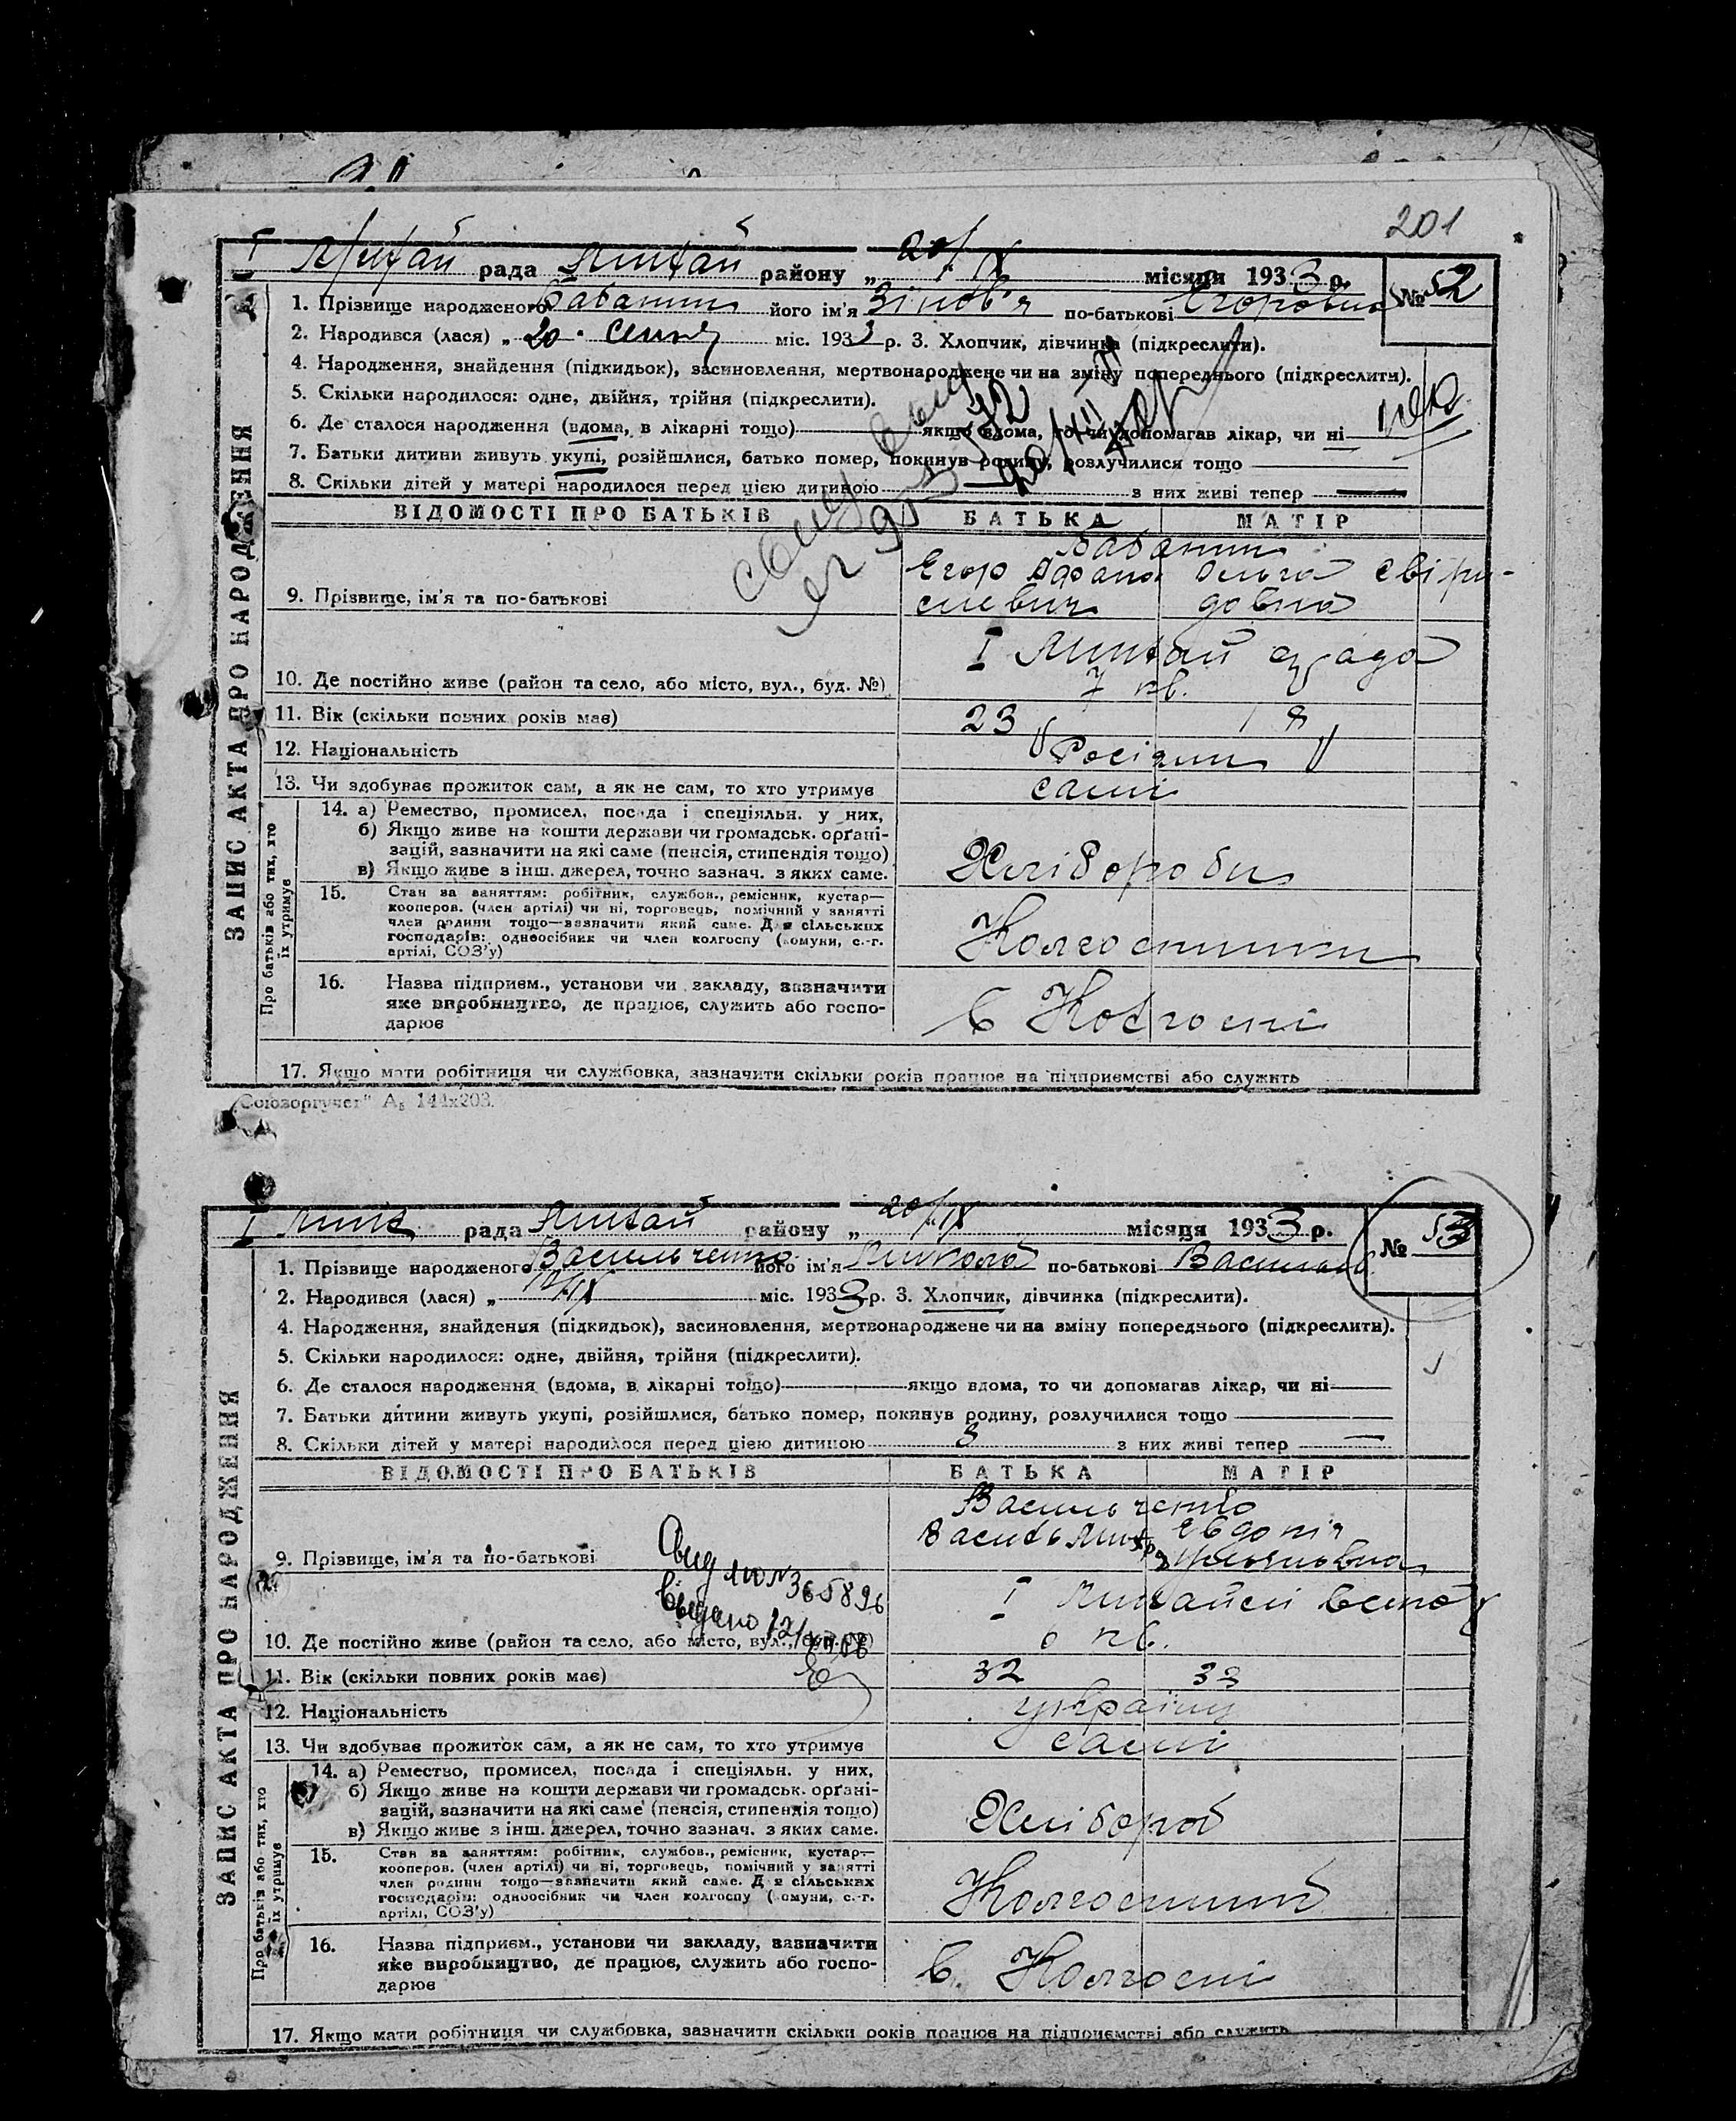 201
рада району „20/IX місяця 1933 р. № 52
1. Прізвище народженого Бабанин його ім'я Зіновʼя по-батькові Єгоровна
2. Народився (лася) „ 20 міс. 1933 р. 3. Хлопчик, дівчинка (підкреслити).
4. Народження, знайдення (підкидьок), засиновлення, мертвонароджене чи на зміну попереднього (підкреслити).
5. Скільки народилося: одне, двійня, трійня (підкреслити).
6. Де сталося народження (вдома, в лікарні тощо) якщо вдома, то чи допомагав лікар, чи ні
7. Батьки дитини живуть укупі, розійшлися, батько помер, покинув родину, розлучилися тощо
8. Скільки дітей у матері народилося перед цією дитиною з них живі тепер
ВІДОМОСТІ ПРО БАТЬКІВ БАТЬКА МАТІР
Бабанин
Єгор Афана Ольга Свіри-
сиевич довна
9. Прізвище, ім'я та по-батькові
I
10. Де постійно живе (район та село, або місто, вул., буд. №) 7
11. Вік (скільки повних років має) 23 18
12. Національність Росіяни
13. Чи здобуває прожиток сам, а як не сам, то хто утримує самі
14. а) Ремество, промисел, посада і спеціяльн. у них,
б) Якщо живе на кошти держави чи громадськ. орґані-
зацій, зазначити на які саме (пенсія, стипендія тощо) Хлібороби
в) Якщо живе з інш. джерел, точно зазнач. з яких саме.
15. Стан за заняттям: робітник, службов., ремісник, кустар—
кооперов. (член артілі) чи ні, торговець, помічний у занятті
член родини тощо—зазначити який саме. Для сільських
господарів: одноосібник чи член колгоспу (комуни, с.-г.
артілі, СОЗ'у) Колгоспники
16. Назва підприєм., установи чи закладу, зазначити
яке виробництво, де працює, служить або госпо-
дарює В Колгоспі
17. Якщо мати робітниця чи службовка, зазначити скільки років працює на підприємстві або служить
ЗАПИС АКТА ПРО НАРОДЖЕННЯ
Про батьків або тих, хто
їх утримує
„Союзоргучет" А₅ 144х203.
рада району „20/IX місяця 1933 р. № 53
1. Прізвище народженого Васильченко його ім'я Микола по-батькові
2. Народився (лася) „ міс. 1933 р. 3. Хлопчик, дівчинка (підкреслити).
4. Народження, знайдення (підкидьок), засиновлення, мертвонароджене чи на зміну попереднього (підкреслити).
5. Скільки народилося: одне, двійня, трійня (підкреслити).
6. Де сталося народження (вдома, в лікарні тощо) якщо вдома, то чи допомагав лікар, чи ні
7. Батьки дитини живуть укупі, розійшлися, батько помер, покинув родину, розлучилися тощо
8. Скільки дітей у матері народилося перед цією дитиною 3 з них живі тепер —
ВІДОМОСТІ ПРО БАТЬКІВ БАТЬКА МАТІР
Васильченко
Євдокія
9. Прізвище, ім'я та по-батькові
365896
I
10. Де постійно живе (район та село, або місто, вул., буд. №)
11. Вік (скільки повних років має) 32 33
12. Національність україн
13. Чи здобуває прожиток сам, а як не сам, то хто утримує самі
14. а) Ремество, промисел, посада і спеціяльн. у них,
б) Якщо живе на кошти держави чи громадськ. орґані-
зацій, зазначити на які саме (пенсія, стипендія тощо) Хлібороб
в) Якщо живе з інш. джерел, точно зазнач. з яких саме.
15. Стан за заняттям: робітник, службов., ремісник, кустар—
кооперов. (член артілі) чи ні, торговець, помічний у занятті
член родини тощо—зазначити який саме. Для сільських
господарів: одноосібник чи член колгоспу (комуни, с.-г.
артілі, СОЗ'у) Колгоспник
16. Назва підприєм., установи чи закладу, зазначити
яке виробництво, де працює, служить або госпо-
дарює В. Колгоспі
17. Якщо мати робітниця чи службовка, зазначити скільки років працює на підприємстві або служить
ЗАПИС АКТА ПРО НАРОДЖЕННЯ
Про батьків або тих, хто
їх утримує